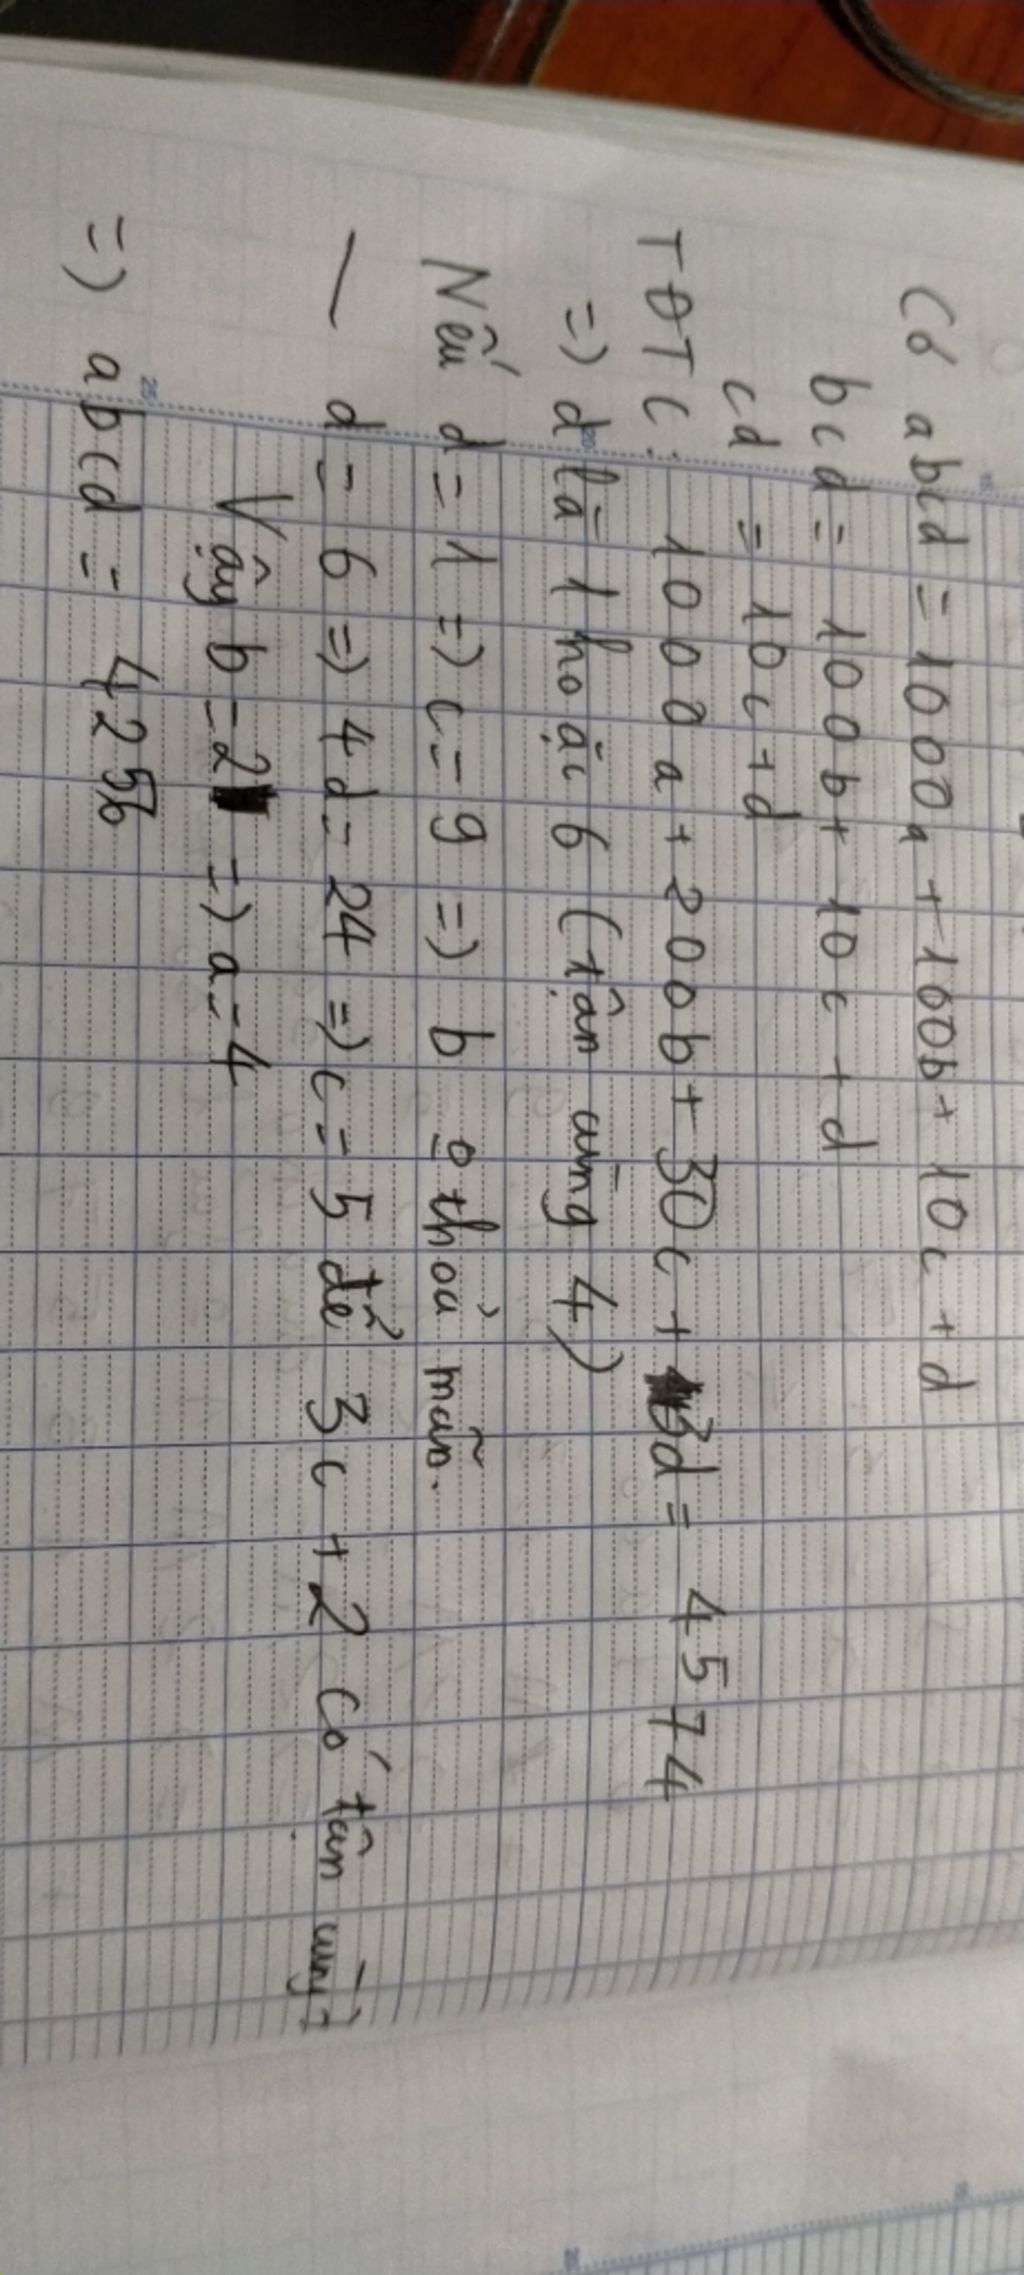 Có abcd = 1000a + 100b + 10c + d
bcd = 100b + 10c + d
cd = 10c + d
TĐTC: 1000a + 200b + 30c + 3d = 4574
=) d là 1 hoặc 6 (tận cùng 4)
Nếu d = 1 =) c = 9 =) b o thoả mãn.
— d = 6 =) 4d = 24 =) c = 5 để 3c + 2 có tận cùng 7
Vậy b = 2 =) a = 4
=) abcd = 4256
25
20